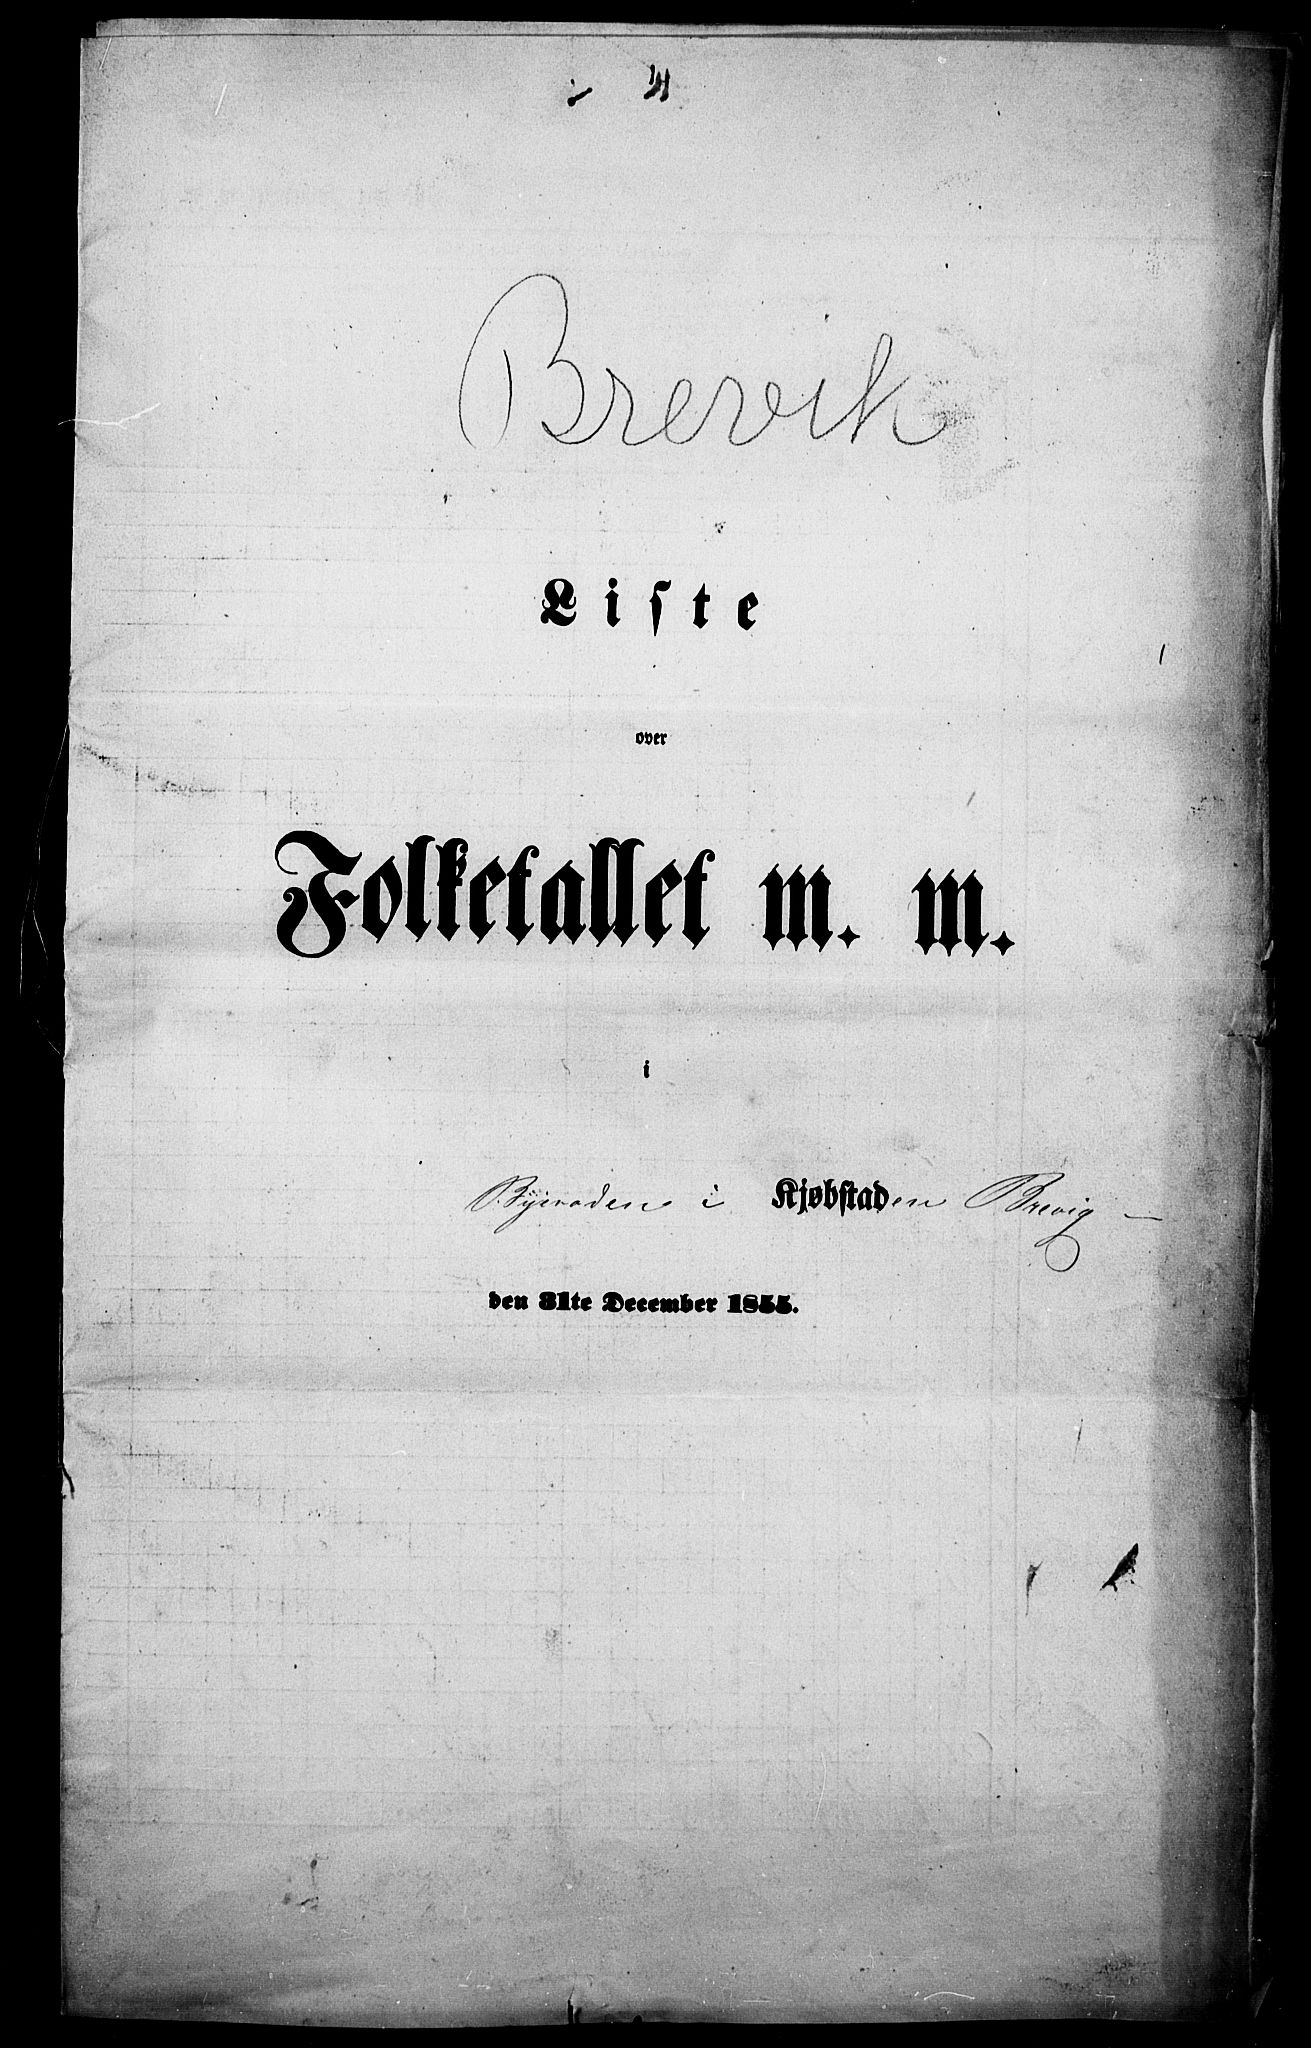 Brevik
Liste
over
Folketallet m. m.
i
Byeroden i Kjøbstaden Brevig
den 31te December 1855.